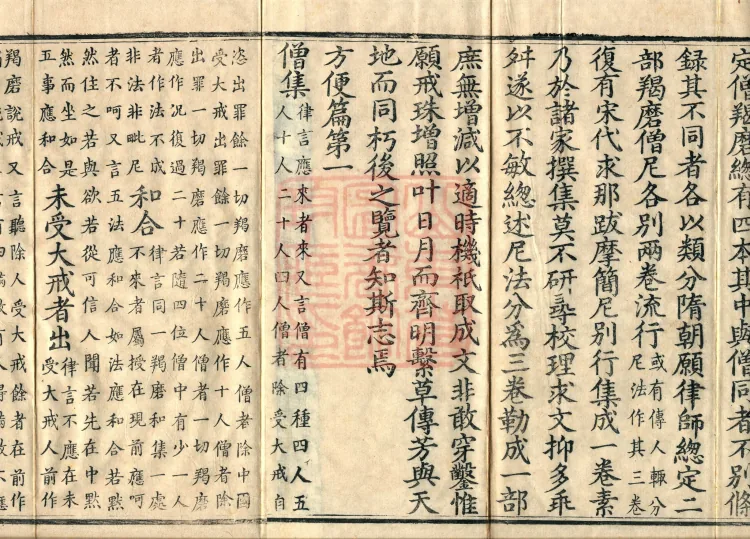 定僧羯磨總有四本其中與僧同者不別條
録其不同者各以類分隋朝願律師總定二
部羯磨僧尼各別兩卷流行
或有傳人輒分
尼法作其三卷
復有宋代求那跋摩簡尼別行集成一卷素
乃於諸家撰集莫不研尋校理求文抑多乖
舛遂以不敏總述尼法分為三卷勒成一部
庶無增減以適時機祇取成文非敢穿鑿惟
願戒珠增照叶日月而齊明繫草傳芳與天
地而同朽後之覽者知斯志焉
方便篇第一
僧集
律言應來者來又言僧有四種四人五
人十人二十人四人僧者除受大戒自
恣出罪餘一切羯磨應作五人僧者除中國
受大戒出罪餘一切羯磨應作十人僧者除
出罪一切羯磨應作二十人僧者一切羯磨
應作况復過二十若隨四位僧中有少一人
者作法不成
非法非毗尼
和合
律言同一羯磨和集一處
不來者屬授在現前應呵
者不呵又言五法應和合如法應和合若默
然住之若與欲若從可信人聞若先在中默
然而坐如是
五事應和合
未受大戒者出
律言不應在未
受大戒人前作
羯磨說戒又言聽除人受大戒餘者在前作